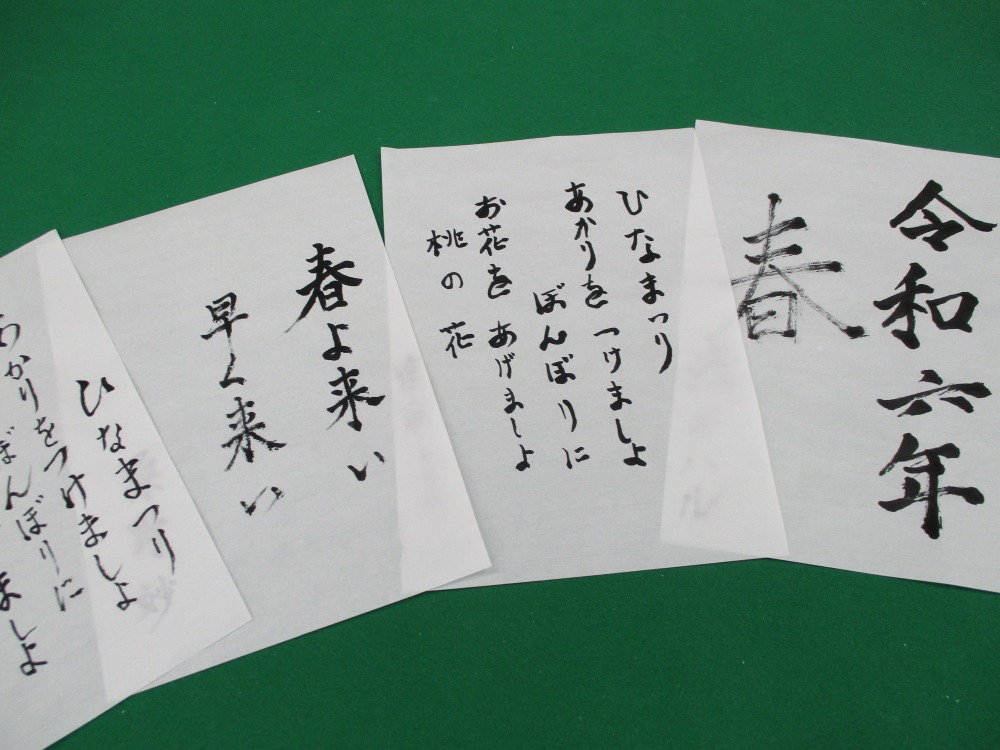 令和六年
春
ひなまつり
あかりを つけましよ
ぼんぼりに
お花を あげましよ
桃の花
春よ来い
早く来い
ひなまつり
あかりをつけましよ
ぼんぼりに
ましよ